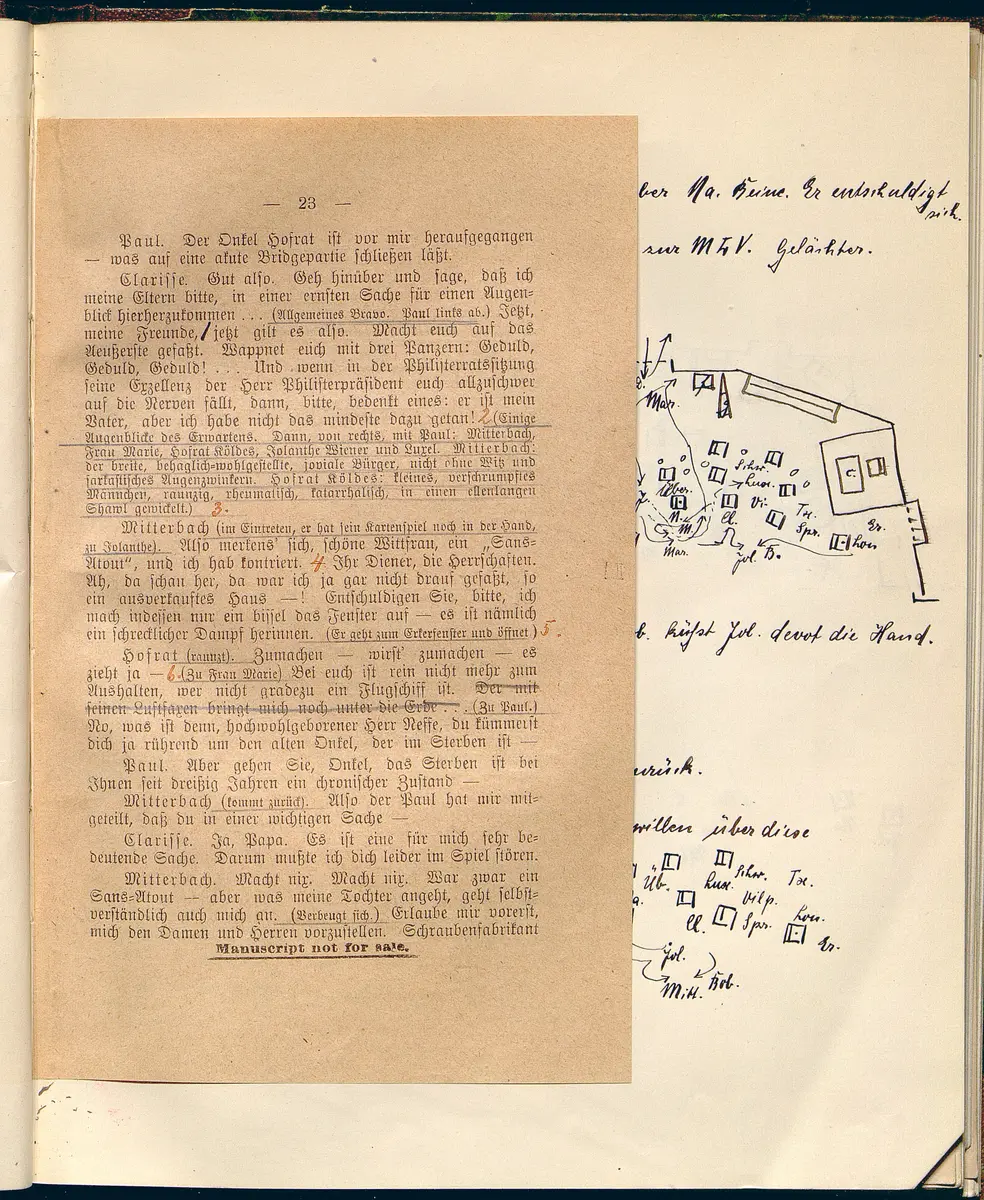 — 23 —
Paul. Der Onkel Hofrat ist vor mir heraufgegangen
— was auf eine akute Bridgepartie schließen läßt.
Clarisse. Gut also. Geh hinüber und sage, daß ich
meine Eltern bitte, in einer ernsten Sache für einen Augen=
blick hierherzukommen ... (Allgemeines Bravo. Paul links ab.) Jetzt,
meine Freunde, jetzt gilt es also. Macht euch auf das
Aeußerste gefaßt. Wappnet euch mit drei Panzern: Geduld,
Geduld, Geduld! ... Und wenn in der Philisterratssitzung
seine Exzellenz der Herr Philisterpräsident euch allzuschwer
auf die Nerven fällt, dann, bitte, bedenkt eines: er ist mein
Vater, aber ich habe nicht das mindeste dazu getan! 2 (Einige
Augenblicke des Erwartens. Dann, von rechts, mit Paul: Mitterbach,
Frau Marie, Hofrat Köldes, Jolanthe Wiener und Luxel. Mitterbach:
der breite, behaglich=wohlgestellte, joviale Bürger, nicht ohne Witz und
sarkastisches Augenzwinkern. Hofrat Köldes: kleines, verschrumpftes
Männchen, raunzig, rheumalisch, katarrhalisch, in einen ellenlangen
Shawl gewickelt.) 3.
Mitterbach (im Eintreten, er hat sein Kartenspiel noch in der Hand,
zu Jolanthe). Also merkens' sich, schöne Wittfrau, ein „Sans=
Atout“, und ich hab kontriert. 4. Ihr Diener, die Herrschaften.
Ah, da schau her, da war ich ja gar nicht drauf gefaßt, so
ein ausverkauftes Haus —! Entschuldigen Sie, bitte, ich
mach indessen nur ein bissel das Fenster auf — es ist nämlich
ein schrecklicher Dampf herinnen. (Er geht zum Erkerfenster und öffnet) 5.
Hofrat (raunzt). Zumachen — wirst' zumachen — es
zieht ja — 6. (Zu Frau Marie) Bei euch ist rein nicht mehr zum
Aushalten, wer nicht gradezu ein Flugschiff ist. Der mit
seinen Luftfaxen bringt mich noch unter die Erde ... (Zu Paul.)
No, was ist denn, hochwohlgeborener Herr Neffe, du kümmerst
dich ja rührend um den alten Onkel, der im Sterben ist —
Paul. Aber gehen Sie, Onkel, das Sterben ist bei
Ihnen seit dreißig Jahren ein chronischer Zustand —
Mitterbach (kommt zurück). Also der Paul hat mir mit=
geteilt, daß du in einer wichtigen Sache —
Clarisse. Ja, Papa. Es ist eine für mich sehr be=
deutende Sache. Darum mußte ich dich leider im Spiel stören.
Mitterbach. Macht nix. Macht nix. War zwar ein
Sans=Atout — aber was meine Tochter angeht, geht selbst=
verständlich auch mich an. (Verbeugt sich.) Erlaube mir vorerst,
mich den Damen und Herren vorzustellen. Schraubenfabrikant
Manuscript not for sale.
ber Ma. Keine. Er entschuldigt
sich.
zur M I V. Gelächter.
Mar.
Schw.
Lux.
Über.
Vi.
Cl.
Tx.
Spr.
Er.
Lou
M.
Mar.
Jol. B.
C.
b. küßt Jol. devot die Hand.
zurück.
willen über diese
Schw.
Tx.
Üb.
Lux.
Vilp.
Cl.
Spr.
Lou.
Er.
Jol.
Mitt.
Bob.